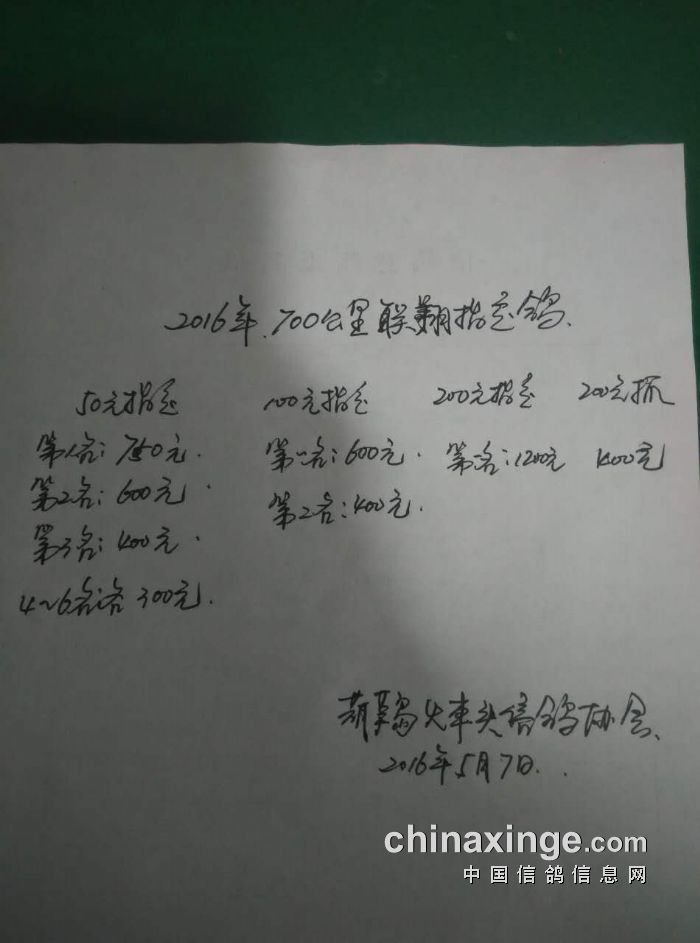 2016年.700公里联翔指定鸽.
50元指定 100元指定 200元指定 200元抓
第1名:750元. 第一名:600元. 第一名:1200元 1400元
第2名:600元. 第二名:400元.
第3名:400元.
4~6名各 300元.
葫芦岛火车头信鸽协会.
2016年5月7日..
chinaxinge.com
中国信鸽信息网